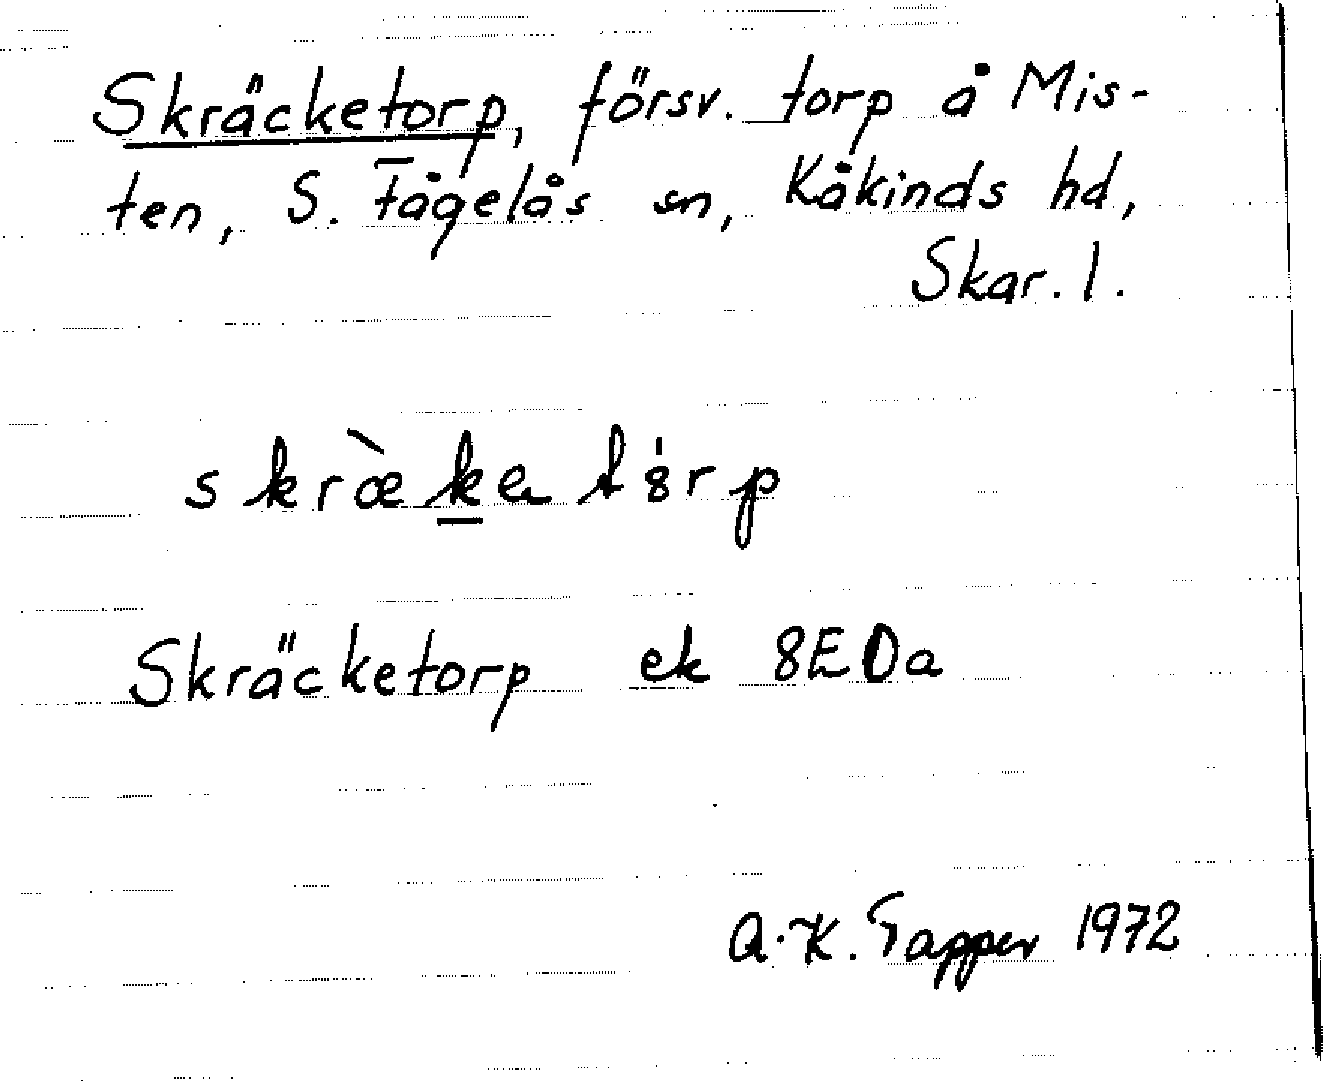 Skräcketorp, försv. torp å Mis-
ten, S. Fågelås sn, Kåkinds hd,
Skar. l.
skræ̀ke tȯrp
Skräcketorp ek 8EDa
A.-K. Tapper 1972